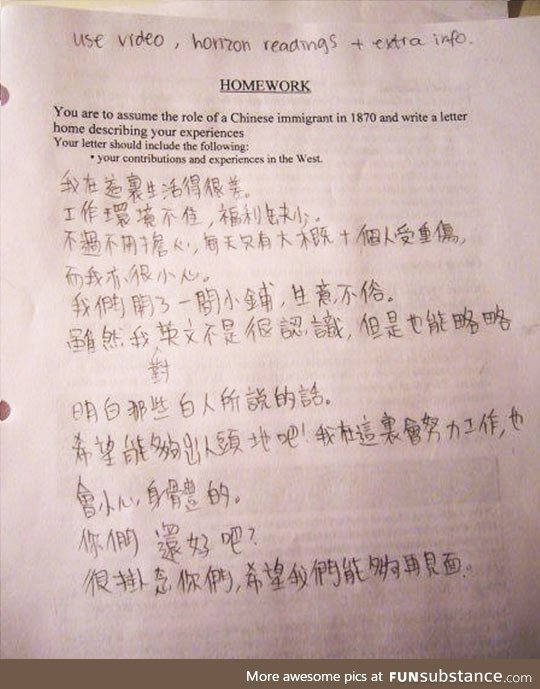 use video, horizon readings + extra info.
HOMEWORK
You are to assume the role of a Chinese immigrant in 1870 and write a letter
home describing your experiences
Your letter should include the following:
• your contributions and experiences in the West.
我在這裏生活得很差。
工作環境不佳，福利缺少。
不過不用擔心，每天只有大概十個人受重傷，
而我亦很小心。
我們開了一間小鋪，生意不俗。
雖然我英文不是很認識，但是也能略略
對
明白那些白人所說的話。
希望能夠出人頭地吧！我在這裏會努力工作，也
會小心身體的。
你們還好吧？
很掛念你們，希望我們能夠再見面。
More awesome pics at FUNsubstance.com